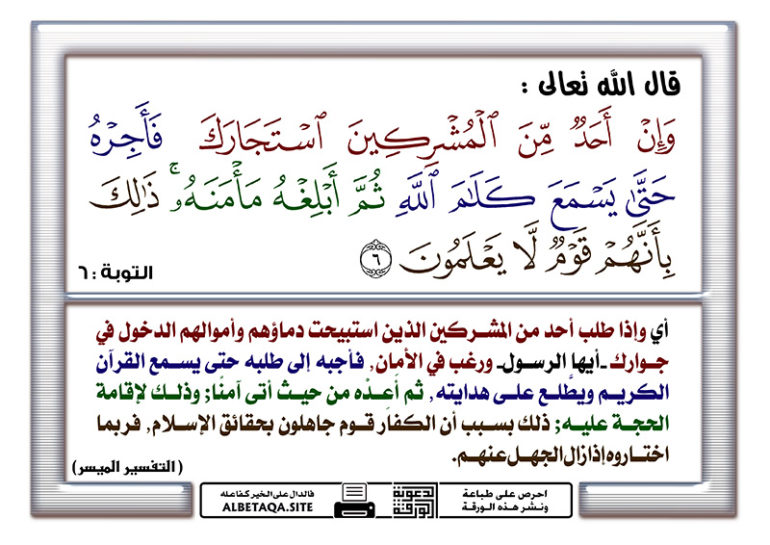 قال الله تعالى :
وَإِنْ أَحَدٌ مِّنَ ٱلْمُشْرِكِينَ ٱسْتَجَارَكَ فَأَجِرْهُ
حَتَّىٰ يَسْمَعَ كَلَٰمَ ٱللَّهِ ثُمَّ أَبْلِغْهُ مَأْمَنَهُۥ ۚ ذَٰلِكَ
بِأَنَّهُمْ قَوْمٌ لَّا يَعْلَمُونَ ٦
التوبة : ٦
أي وإذا طلب أحد من المشركين الذين استبيحت دماؤهم وأموالهم الدخول في
جوارك -أيها الرسول- ورغب في الأمان, فأجبه إلى طلبه حتى يسمع القرآن
الكريم ويطَّلع على هدايته, ثم أَعِدْه من حيث أتى آمنًا; وذلك لإقامة
الحجة عليه; ذلك بسبب أن الكفار قوم جاهلون بحقائق الإسلام, فربما
اختاروه إذا زال الجهل عنهم.
(التفسير الميسر)
احرص على طباعة
ونشر هذه الورقة
الورقة الدعوية
فالدال على الخير كفاعله
ALBETAQA.SITE